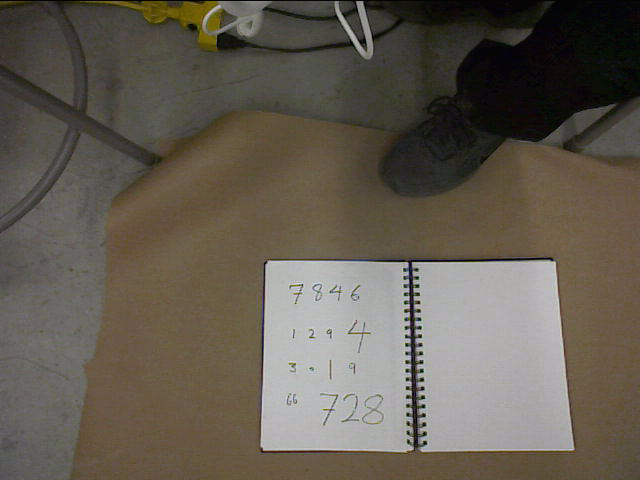 7 8 4 6
1 2 9 4
3 0 1 9
66 728